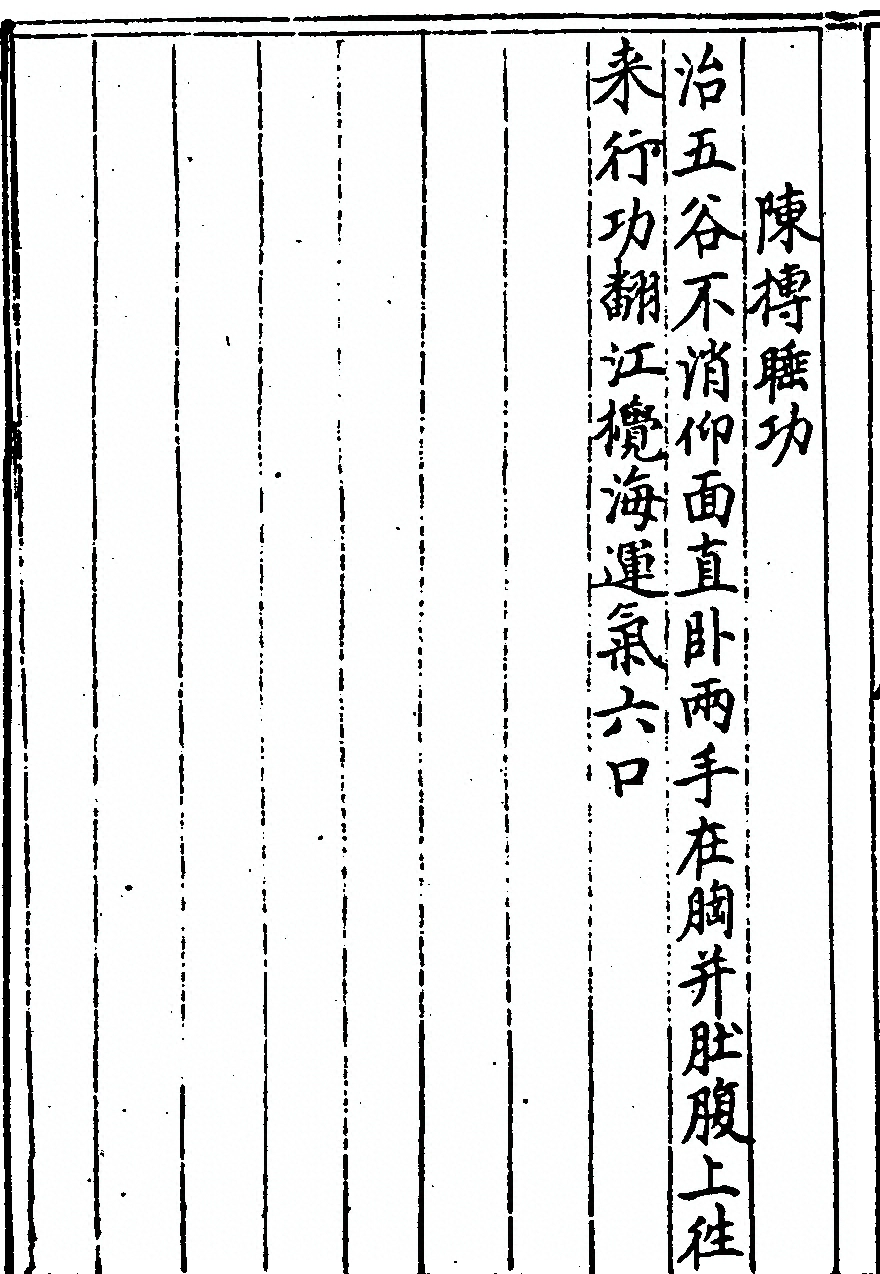 陳摶睡功
治五谷不消仰面直卧兩手在胸并肚腹上徃
来行功翻江攪海運氣六口